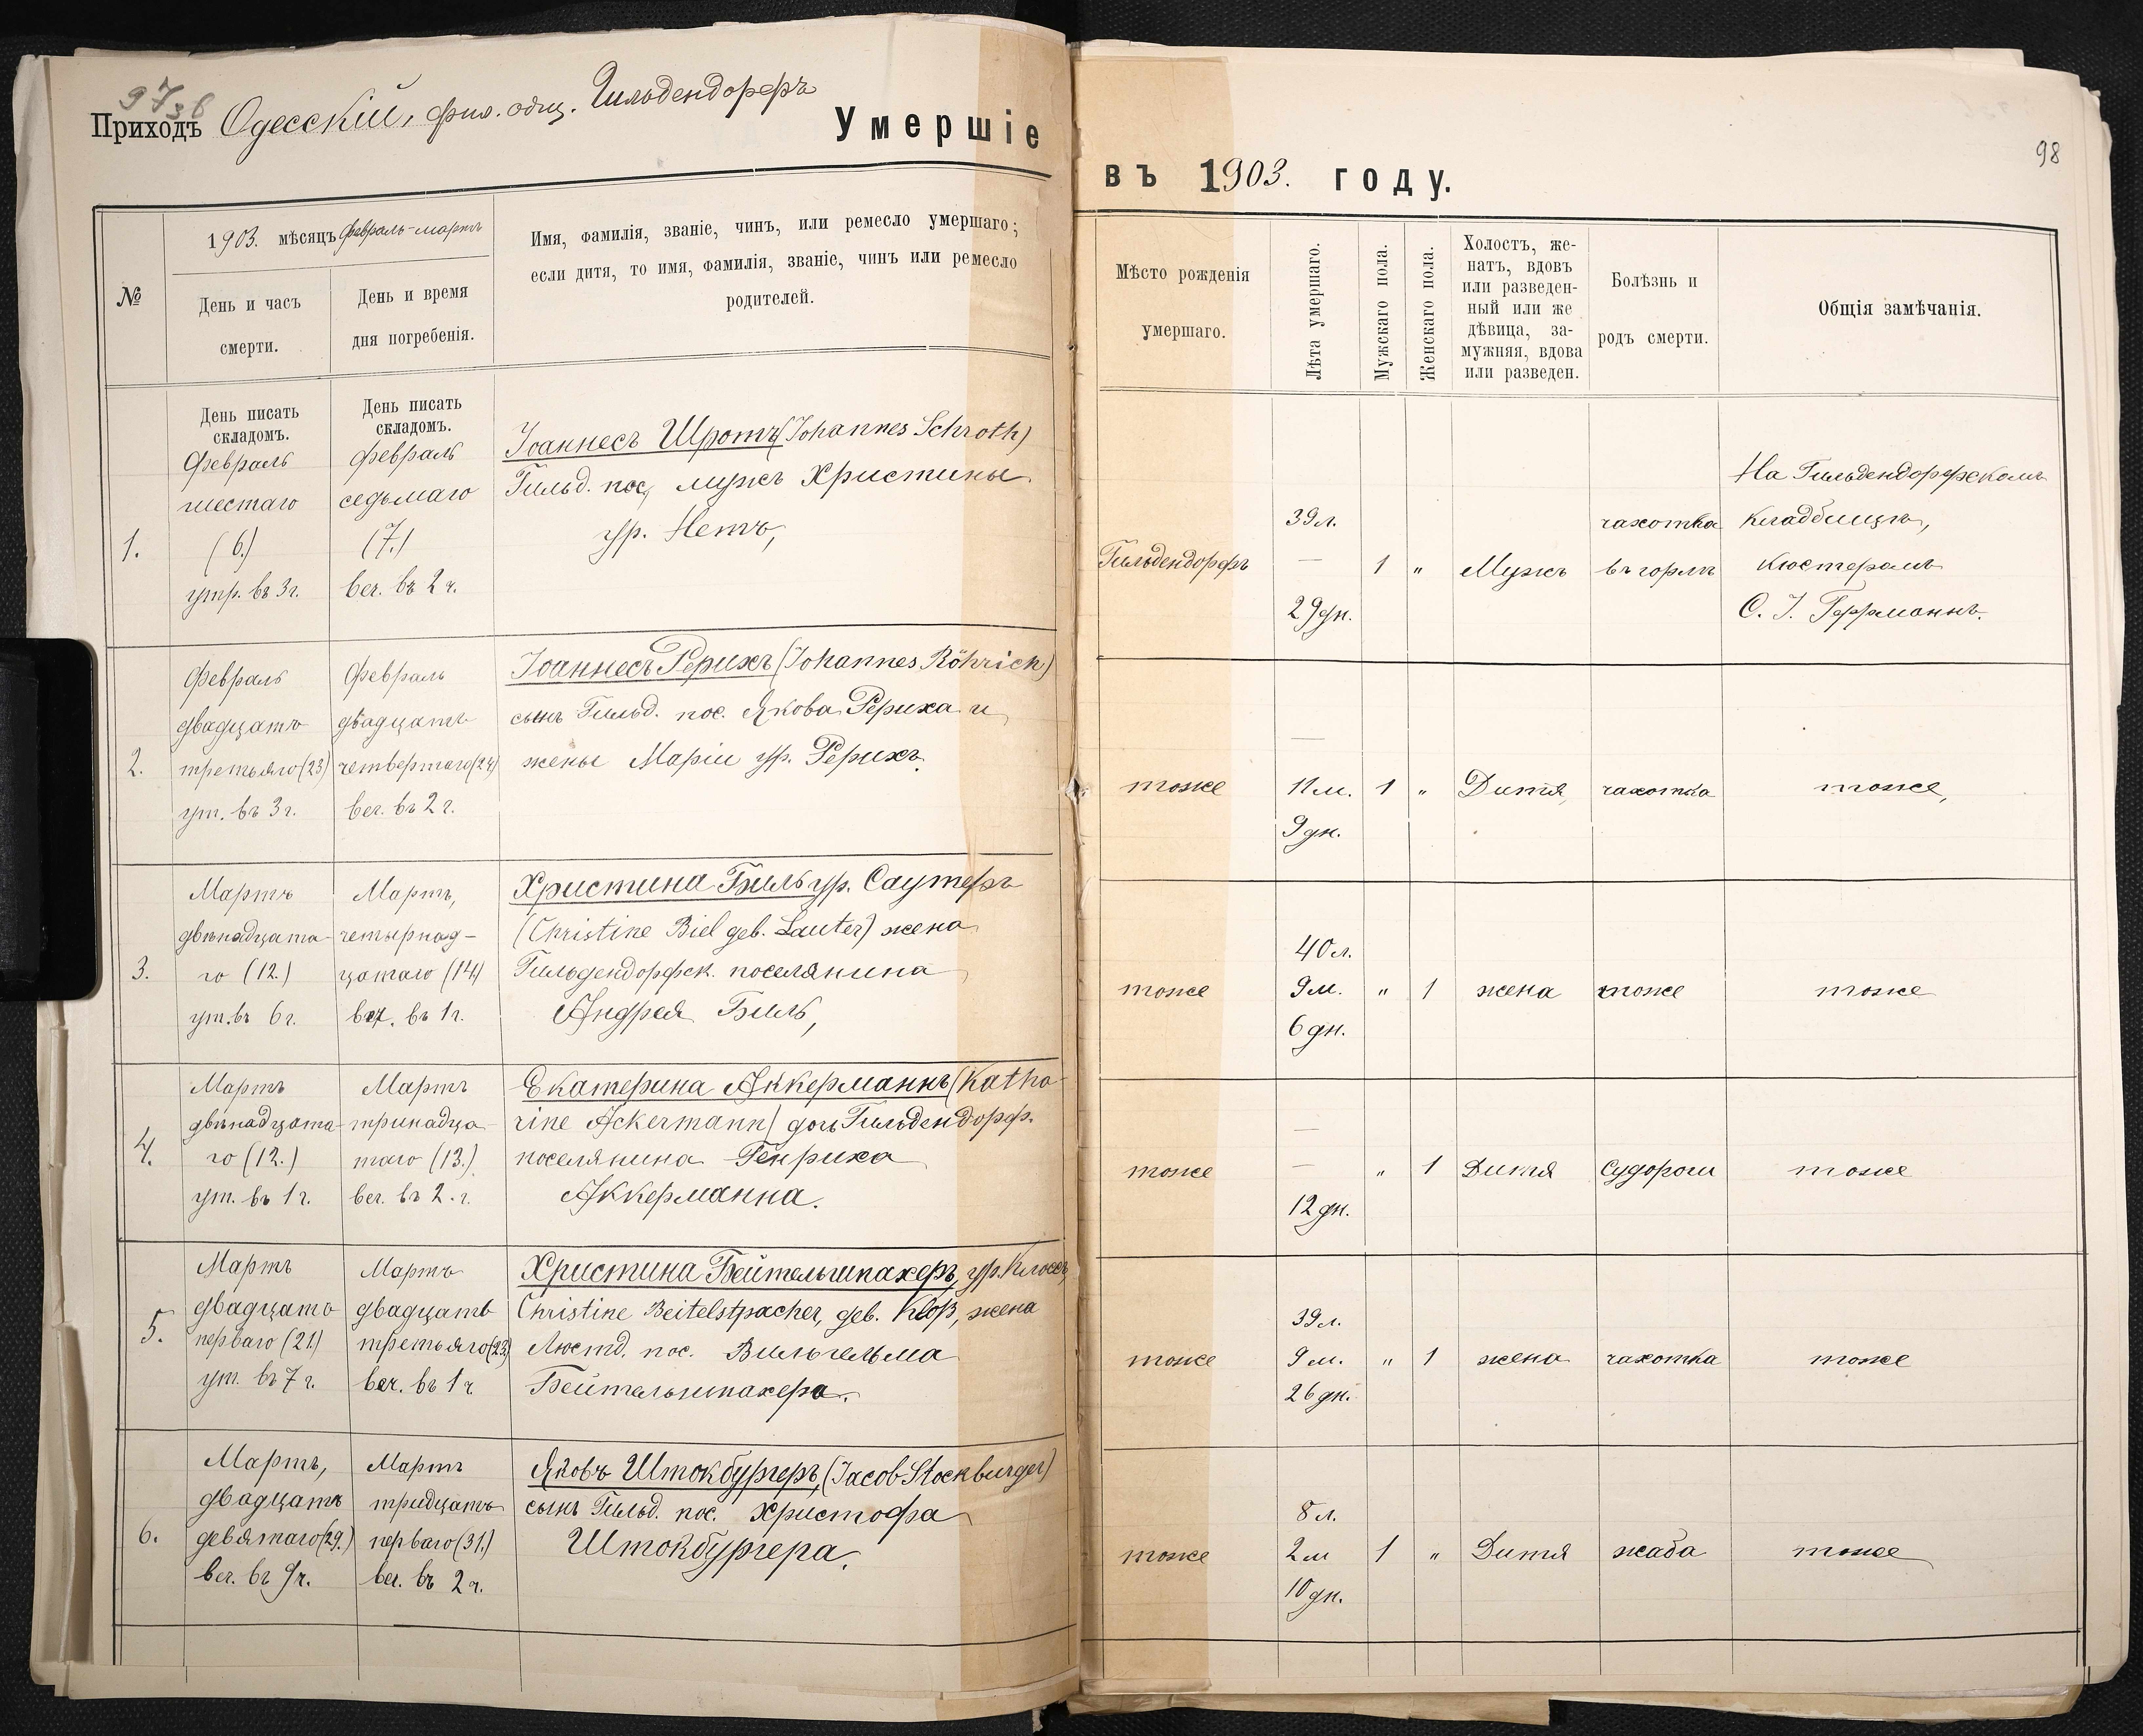 97 зв
Приходъ Одесскій, фил. общ. Гильдендорфъ
Умершіе
въ 1903. году.
98
№
1903. мѣсяцъ Февраль-мартъ
День и часъ
смерти.
День и время
дня погребенія.
Имя, фамилія, званіе, чинъ, или ремесло умершаго;
если дитя, то имя, фамилія, званіе, чинъ или ремесло
родителей.
Мѣсто рожденія
умершаго.
Лѣта умершаго.
Мужскаго пола.
Женскаго пола.
Холостъ, же-
натъ, вдовъ
или разведен-
ный или же
дѣвица, за-
мужняя, вдова
или разведен.
Болѣзнь и
родъ смерти.
Общія замѣчанія.
День писать
складомъ.
День писать
складомъ.
1.
Февраль
шестаго
(6.)
утр. въ 3 г.
Февраль
седьмаго
(7.)
веч. въ 2 ч.
Іоаннесъ Шротъ (Johannes Schroth)
Гильд. пос, мужъ Христины
ур. Нетъ,
Гильдендорфъ
39 л.
—
29 дн.
1
"
Мужъ
чахотка
въ горлѣ
На Гильдендорфскомъ
кладбищѣ,
кюстеромъ
С. І. Геррманнъ.
2.
Февраль
двадцать
третьяго (23)
ут. въ 3 г.
Февраль
двадцать
четвертаго (24)
веч. въ 2 г.
Іоаннесъ Рерихъ (Johannes Röhrich)
сынъ Гильд. пос. Якова Рериха и
жены Маріи ур. Рерихъ.
тоже
—
11 м.
9 дн.
1
"
Дитя,
чахотка
тоже,
3.
Мартъ
двѣнадцата-
го (12.)
ут. въ 6 г.
Мартъ,
четырнад-
цатаго (14)
веч. въ 1 г.
Христина Биль ур. Саутеръ
(Christine Biel geb. Sauter) жена
Гильдендорфск. поселянина
Андрея Биль,
тоже
40 л.
9 м.
6 дн.
"
1
жена
тоже
тоже
4.
Мартъ
двѣнадцата-
го (12.)
ут. въ 1 г.
Мартъ
тринадца-
таго (13.)
веч. въ 2. г.
Екатерина Аккерманнъ (Katha-
rine Ackermann) дочь Гильдендорф.
поселянина Генриха
Аккерманна.
тоже
—
—
12 дн.
"
1
Дитя
Судороги
тоже
5.
Мартъ
двадцать
перваго (21.)
ут. въ 7 г.
Мартъ
двадцать
третьяго (23)
веч. въ 1 ч
Христина Бейтельшпахеръ, ур. Клоссъ
Christine Beitelstpacher, geb. Kloß, жена
Люстд. пос. Вильгельма
Бейтельшпахера.
тоже
39 л.
9 м.
26 дн.
"
1
жена
чахотка
тоже
6.
Мартъ,
двадцать
девятаго (29.)
веч. въ 9 ч.
Мартъ
тридцать
перваго (31.)
веч. въ 2 ч.
Яковъ Штокбургеръ, (Jacob Stockburger)
сынъ Гильд. пос. Христофа
Штокбургера.
тоже
8 л.
2 м
10 дн.
1
"
Дитя
жаба
тоже